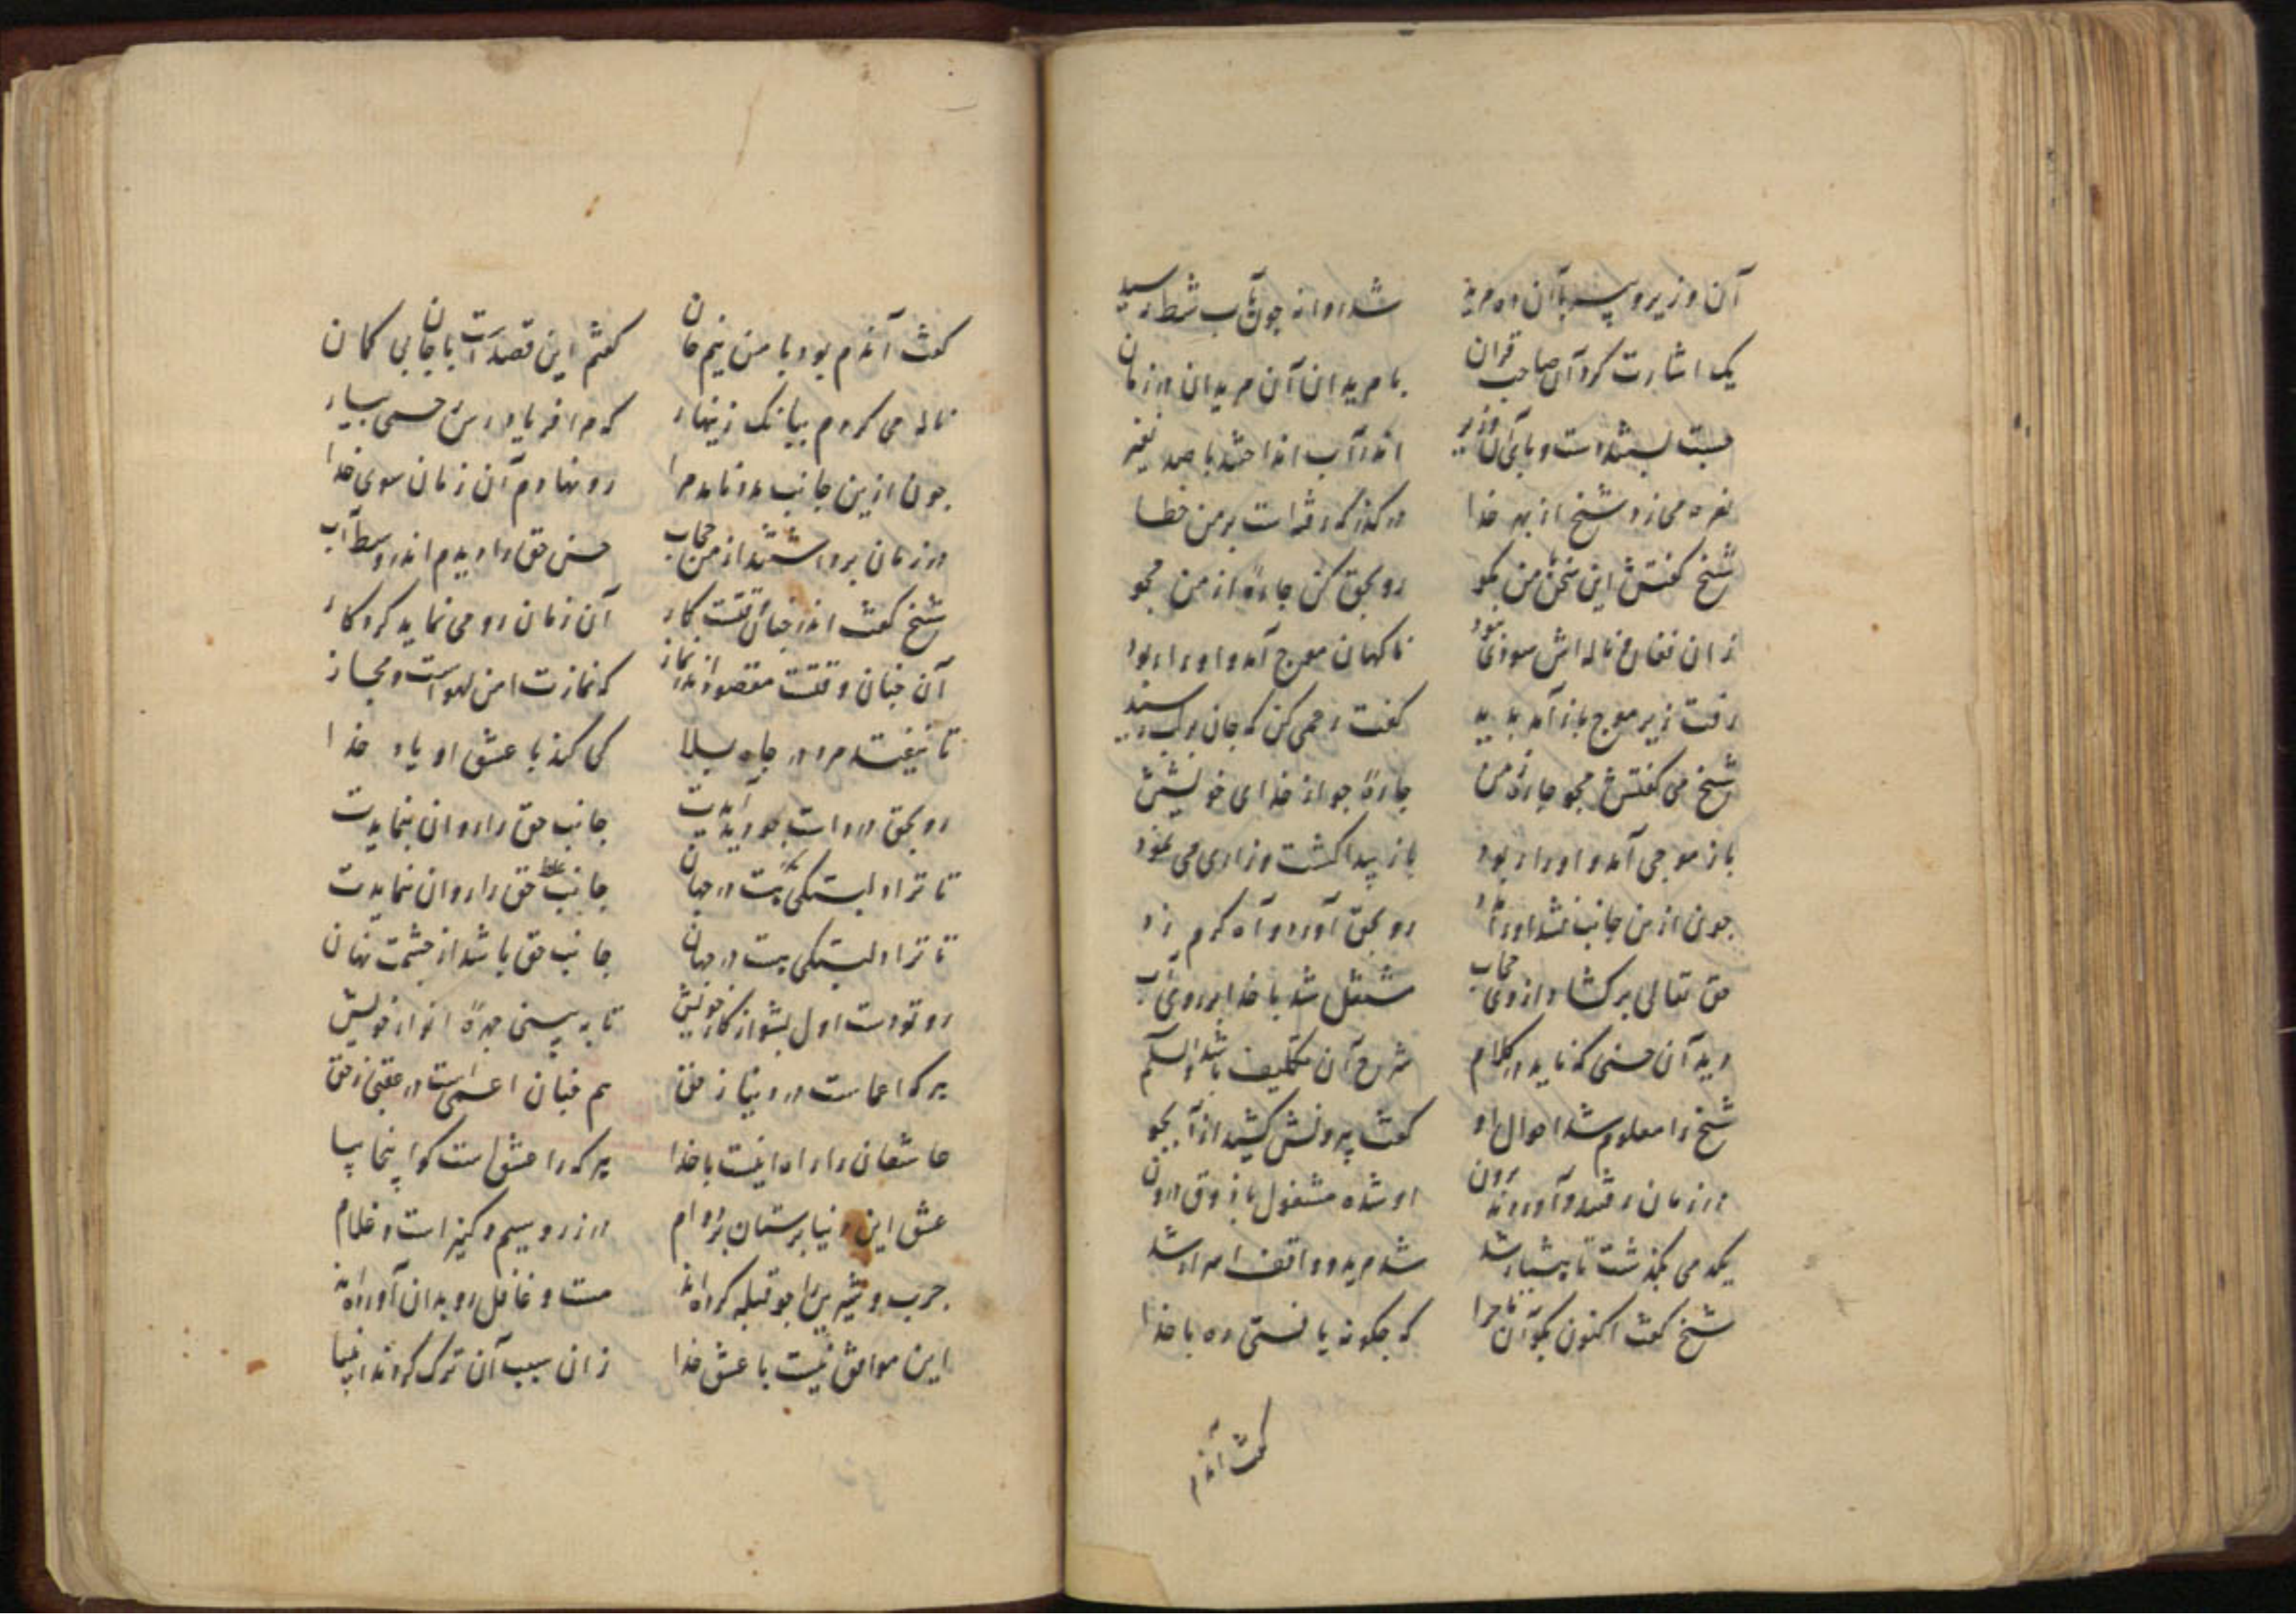 آن وزیر و پیر با آن ده مرید شد روانه چون بآب شط رسید
یک اشارت کرد آن صاحب قران با مریدان آن مریدان در زمان
دست بستند و پای آن وزیر اندر آب انداختند با صد نفیر
نعره می زد شیخ از بهر خدا درگذر که رفته است بر من خطا
شیخ گفتش این سخن من مگو رو بحق کن چاره از من مجو
زان فغان و ناله اش سودی نبود ناکهان موج آمد و او را ربود
رفت زیر موج باز آمد پدید گفت رحمی کن که جان بر لب رسید
شیخ می گفتش مجو چاره ز من چاره جو از خدای خویش
باز موجی آمد و او را ربود باز پیدا گشت و زاری می نمود
چون ازین جانب نشد او را رو بحق آورد و آه گرم زد
حق تعالی برگشاد از وی حجاب مشتغل شد با خدا بر روی آب
دید آن حسنی که ناید در کلام شرح آن تکلیف باشد والسلام
شیخ را معلوم شد احوال او گفت بیرونش کشید از آب جو
در زمان رفتند و آوردند برون او شده مشغول با ذوق درون
یکدمی بگذشت تا هشیار شد شد مرید و واقف اسرار شد
شیخ گفت اکنون بگو آن ماجرا که چگونه یافتی ره با خدا
گفت آندم
گفت آندم بود با من نیم جان گفتم این قصد است با جان بی گمان
ناله می کردم ببانک زینهار که مرا فریاد رس حسی بسیار
چون ازین جانب مدد نامد مرا رو نهادم آن زمان سوی خدا
در زمان برداشتند از من حجاب حسن حق را دیدم اندر وسط آب
شیخ گفت اندر چنان وقتت کار آن زمان رو می نماید کردکار
آن چنان وقتت مقصود از نماز که نمازت امن لهو است و مجاز
تا نیفتد مرد در چاه بلا کی کند با عشق او یاد خدا
رو بحق در است چو آیدت جانب حق را روان بنمایدت
تا ترا دلبستگی است در جهان جانب حق را روان ننمایدت
تا ترا دلبستگی است در جهان جانب حق باشد از چشمت نهان
رو تو دست اول بشو از کار خویش تا به بینی چهره انوار خویش
هر که اعما است در دنیا ز حق هم چنان اعمی است در عقبی ز حق
عاشقان را راه اینست با خدا هر که را عشق است کو اینجا بیا
عشق این دنیا پرستان بر دوام در زر و سیم و کنیز است و غلام
چرب و شیرین را چو قبله کرده اند مست و غافل رو بدان آورده اند
این موافق نیست با عشق خدا زان سبب آن ترک کردند انبیا